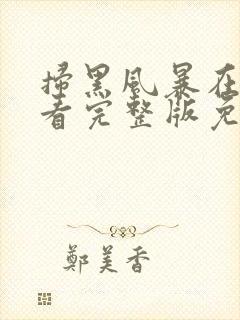 掃黑風暴在
看完整版免
鄭美香